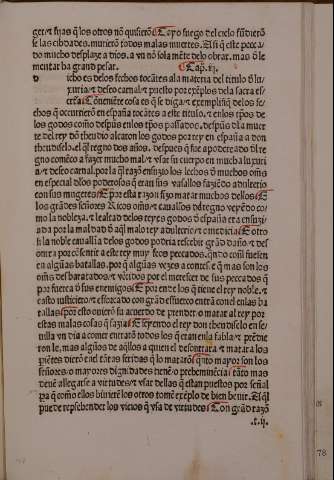 ger & furas q̃ los otros nõ quisierõ Cayo fuego del cielo & fũdierõ
se las cibdades. murierõ todos malas muertes. E si q̃ este peca
do mucho desplaze a dios. a vn nõ sola mẽte delo obrar. mas õ le
mentar ha grand pesar. Cap.
D icho es delos fechos tocãtes ala materia del titulo õ lu
xuria & deseo carnal & puesto por exẽplos dela sacra es
criptura Cõueniẽte cosa es q̃ se diga & exemplifiq̃ delos fe
chos q̃ occurrierõ en españa tocãtes a este titulo. & enlos tpõs de
los godos como despũs enlos tpõs passados. despũs dla muer
te del rey dõ theudio alcaron los godos por rey en españa a don
theudiselo. el q̃l regno dos años. despues q̃ fue apoderado el re
gno comẽco a fazer mucho mal & vsar su cuerpo en mucha luxuri
a & deseo carnal. por la q̃l razõ ensuzio los lechos õ muchos omẽs
en especial dlos poderosos q̃ eran sus vasallos faziẽdo adulterio
con sus mugeres E por esta razon fizo matar muchos dellos E
los grãdes señores & ricos omẽs & cauallos del regno veyẽdo co
mo la nobleza. & lealtad delos reyes godos õ españa era ensuzi
ada por la maldad õ aq̃l malo rey adulterio & cudicia E otro
si la noble cauallia delos godos podria rescebir grãd daño & des
onrra por cõsentir a este rey muy feos peccados. q̃ndo cosil fuesen
en algũas batallas. por q̃ algũas vezes acontesce q̃ mas son los
omẽs desbaratados. & vẽcidos por el merescer de sus peccados q̃
por fuerca õ sus enemigos E por ende los q̃ tiene el rey noble. &
casto iusticiero & esforcado con grãd esfuerco entrã con el enlas ba
tallas por esto ouierõ su acuerdo de prender o matar al rey por
estas malas cosas q̃ fazia E seyendo el rey don theudiselo en se
uilla vn dia a comer entrarõ todos los q̃ eran enla fabla & prẽdie
ron le. mas algũos de aq̃llos a quien el desonrrara & matara los
pariẽtes dierõ enl tãtas feridas q̃ lo matarõ q̃nto mayor son los
señores. o mayores dignidades tienẽ o prebeminẽcia tãto mas
deuẽ allegarse a virtudes & vsar dellas q̃ estan puestos por señal
pa q̃ como ellos biuierẽ los otros tomẽ exẽplo de bien beuir. E si q̃l
puede reprehender los vicios q̃ vsa de virtudes Con grãd razõ
t.ij.
78